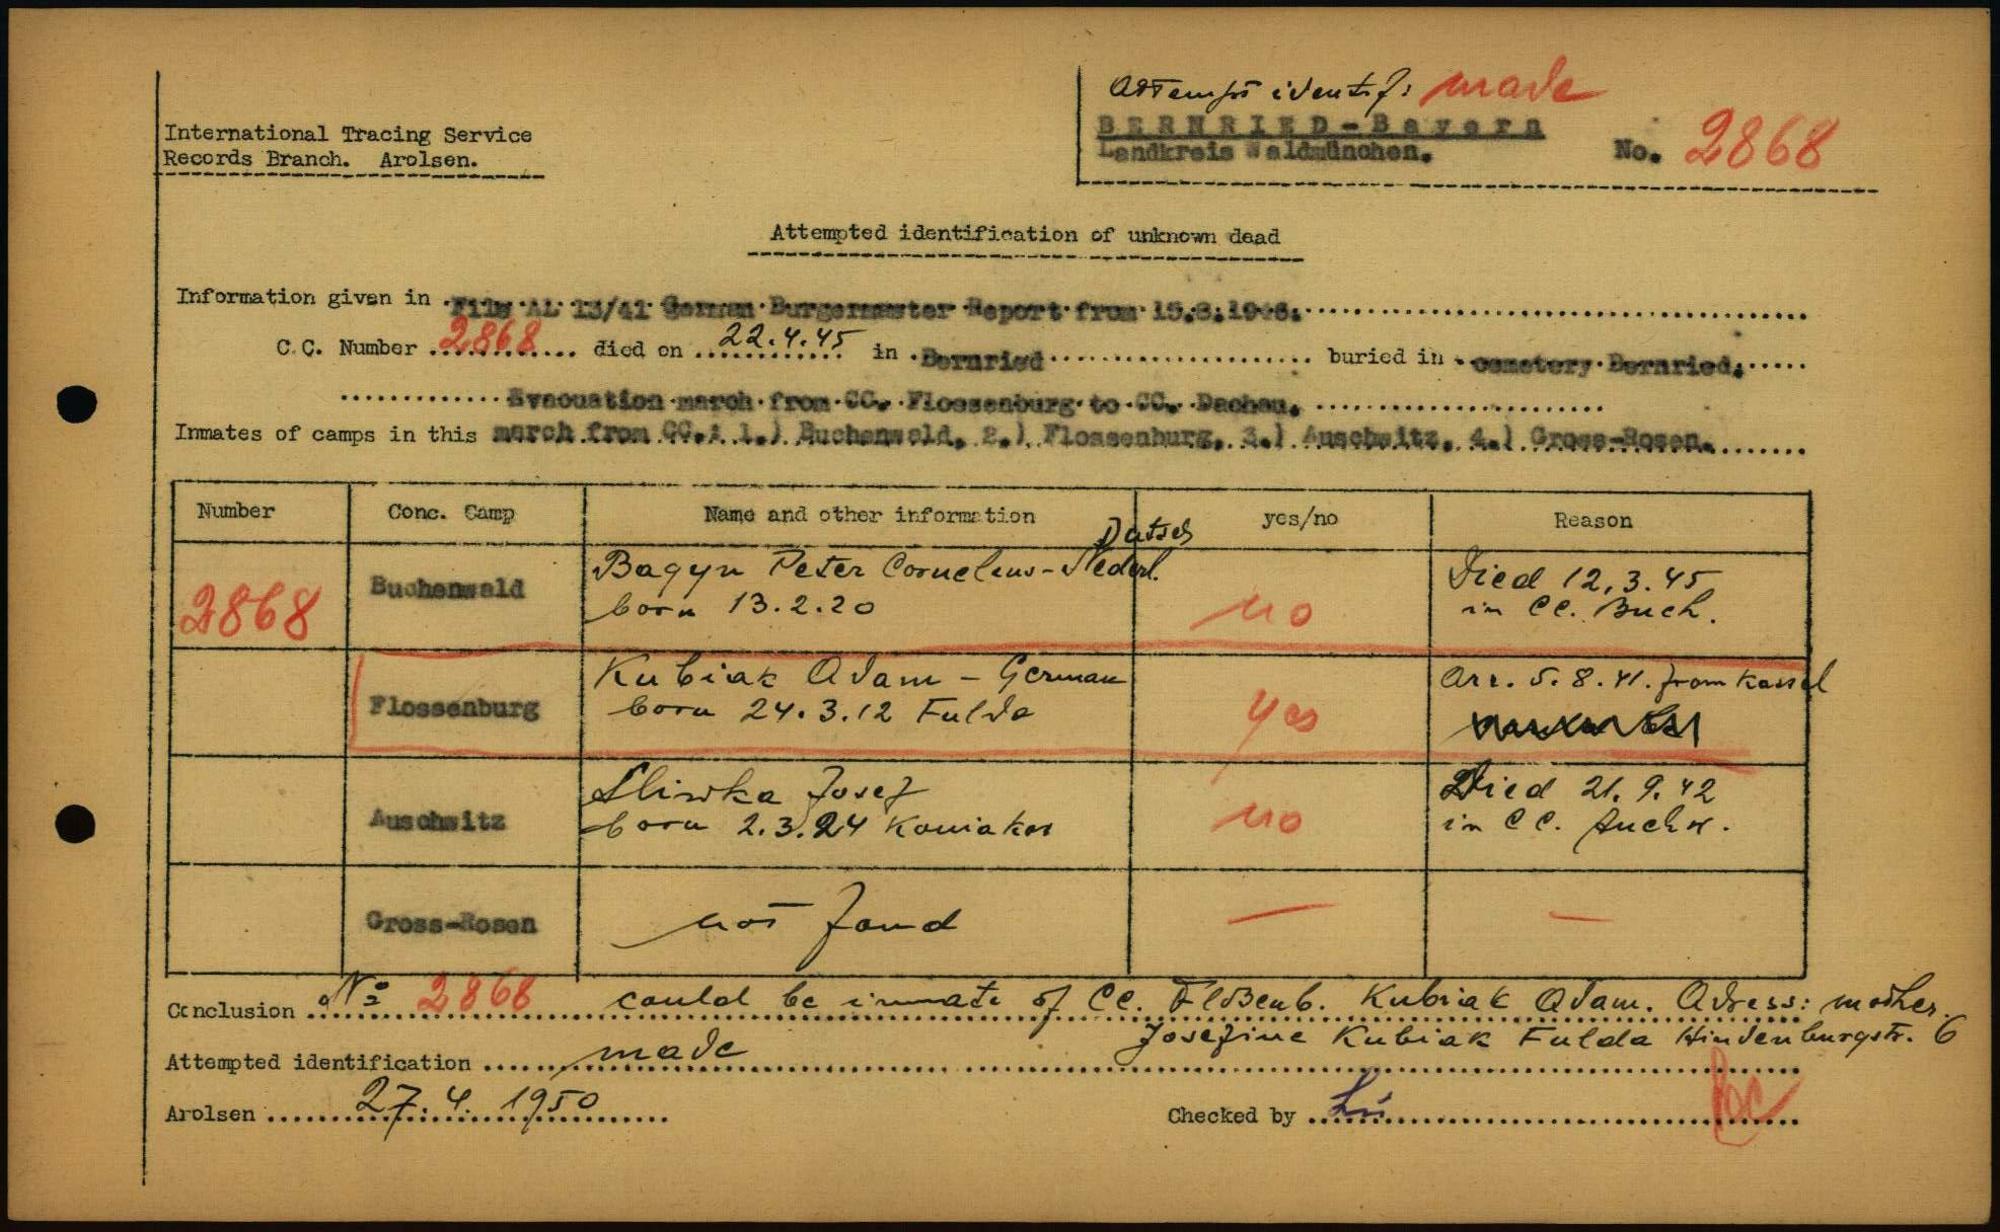 Attempt identif: made
International Tracing Service
Records Branch. Arolsen.
BERNRIED-Bayern
Landkreis Waldmünchen.
No. 2868
Attempted identification of unknown dead
Information given in Film AL 13/41 German Burgermaster Report from
C.C. Number 2868 died on 22.4.45 in Bernried buried in cemetery Bernried.
Evacuation march from CC. Flossenburg to CC. Dachau.
Inmates of camps in this march from CC.: 1.) Buchenwald, 2.) Flossenburg, 3.) Auschwitz, 4.) Gross-Rosen.
Number Conc. Camp Name and other information yes/no Reason
2868 Buchenwald Bagyn Peter Cornelius - Nederl. Dutsch no Died 12.3.45
born 13.2.20 in CC. Buch.
Flossenburg Kubiak Adam - German yes Arr. 5.8.41. from Kassel
born 24.3.12 Fulda
Auschwitz Sliwka Josef no Died 21.9.42
born 2.3.24 Koniakow in CC. Auchw.
Gross-Rosen not fond — —
Conclusion No 2868 could be inmate of CC. Floßenb. Kubiak Adam. Adress: mother.
Josefine Kubiak Fulda Hindenburgstr. 6
Attempted identification made
Arolsen 27.4.1950 Checked by